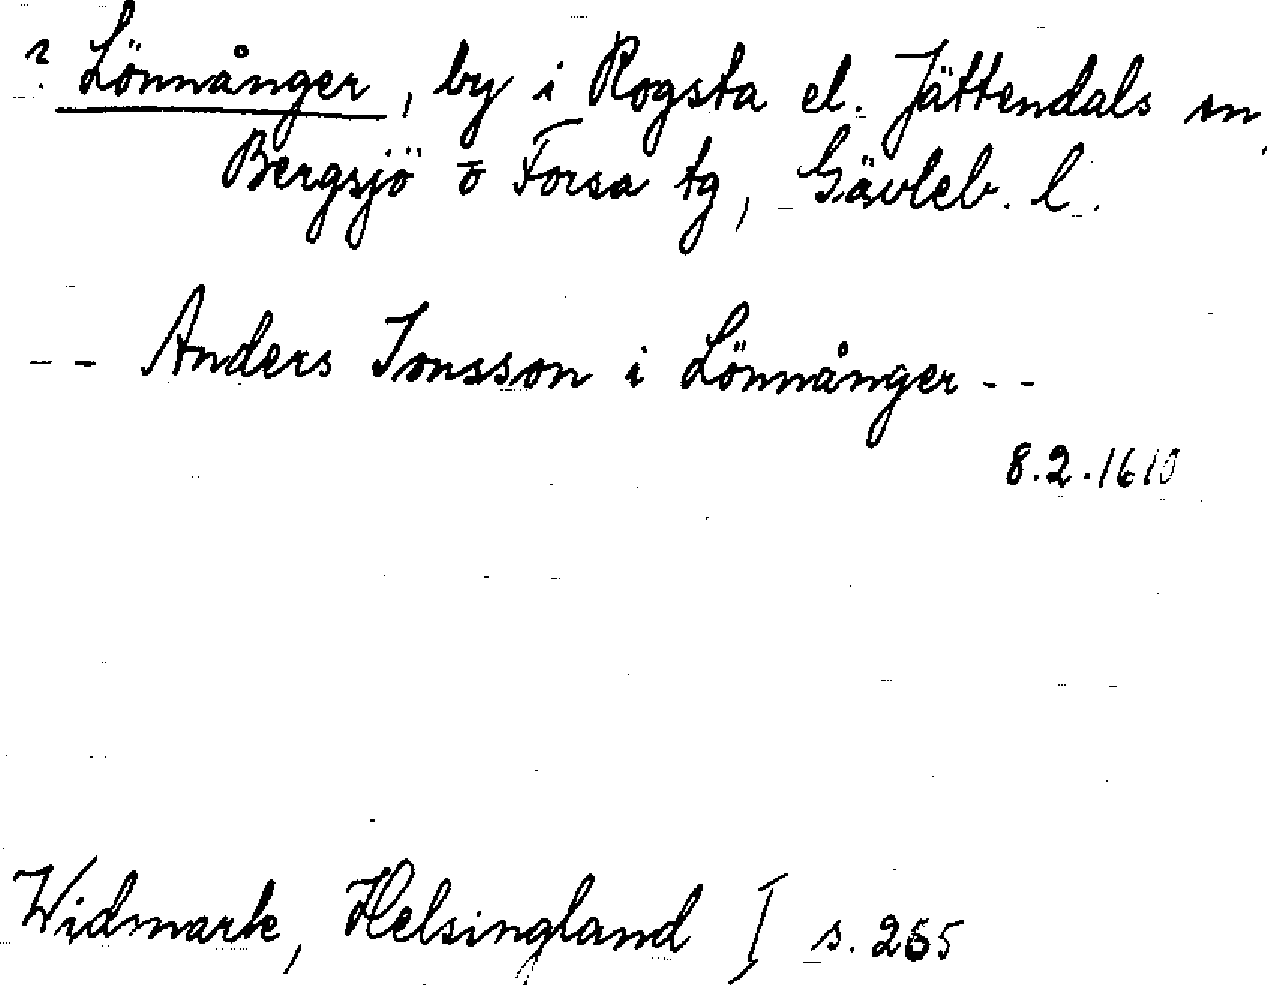 ? Lönnånger, by i Rogsta el. Jättendals sn,
Bergsjö o Forsa tg, Gävleb. l.
-- Anders Jonsson i Lönnånger --
8.2.1610
Widmark, Helsingland I s. 265